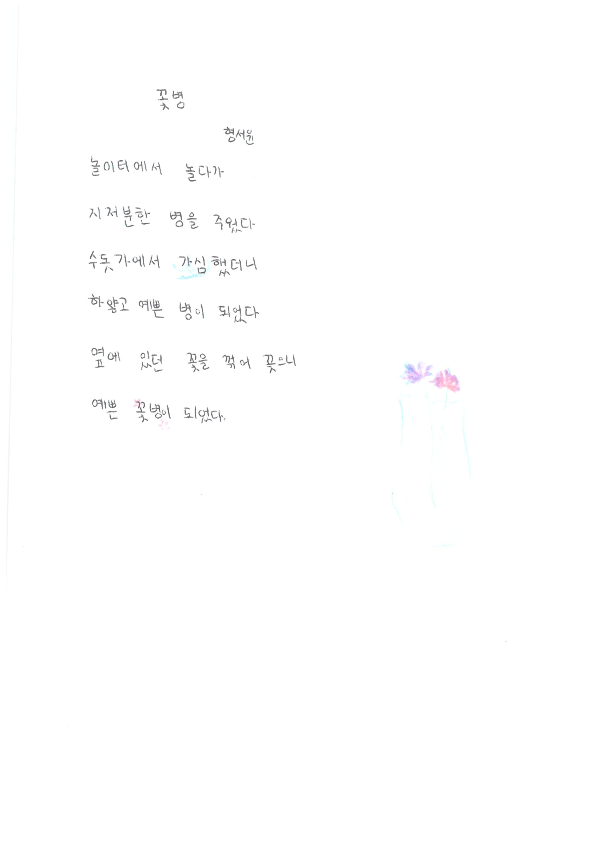 꽃병
형서윤
놀이터에서 놀다가
지저분한 병을 주웠다
수돗가에서 가심했더니
하얗고 예쁜 병이 되었다
옆에 있던 꽃을 꺾어 꽂으니
예쁜 꽃병이 되었다.